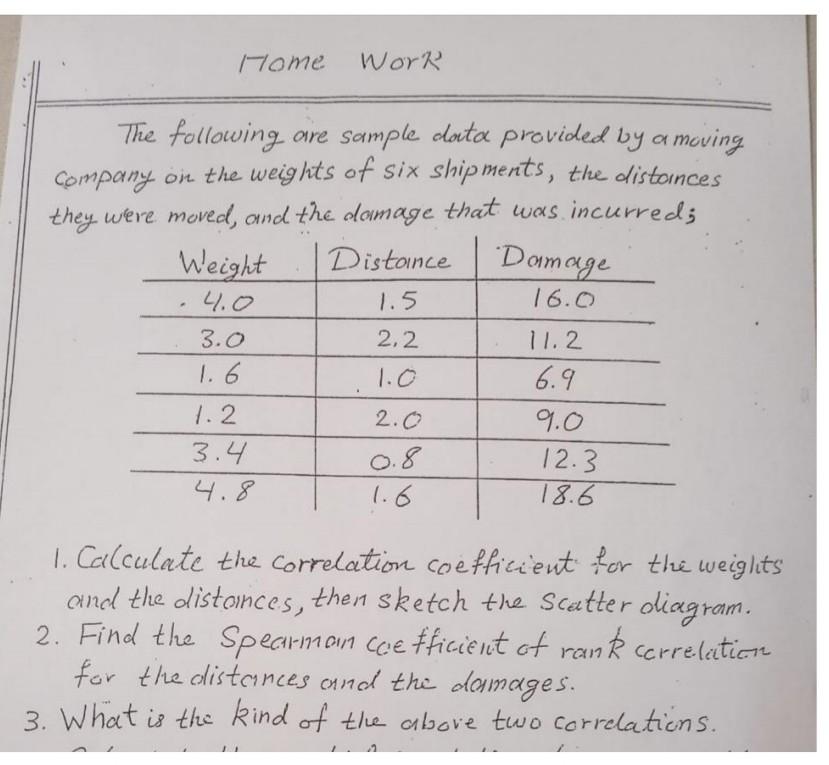 Home Work
The following are sample data provided by a moving
company on the weights of six shipments, the distances
they were moved, and the damage that was incurred;
Weight Distance Damage
4.0 1.5 16.0
3.0 2.2 11.2
1.6 1.0 6.9
1.2 2.0 9.0
3.4 0.8 12.3
4.8 1.6 18.6
1. Calculate the correlation coefficient for the weights
and the distances, then sketch the Scatter diagram.
2. Find the Spearman coefficient of rank correlation
for the distances and the damages.
3. What is the kind of the above two correlations.